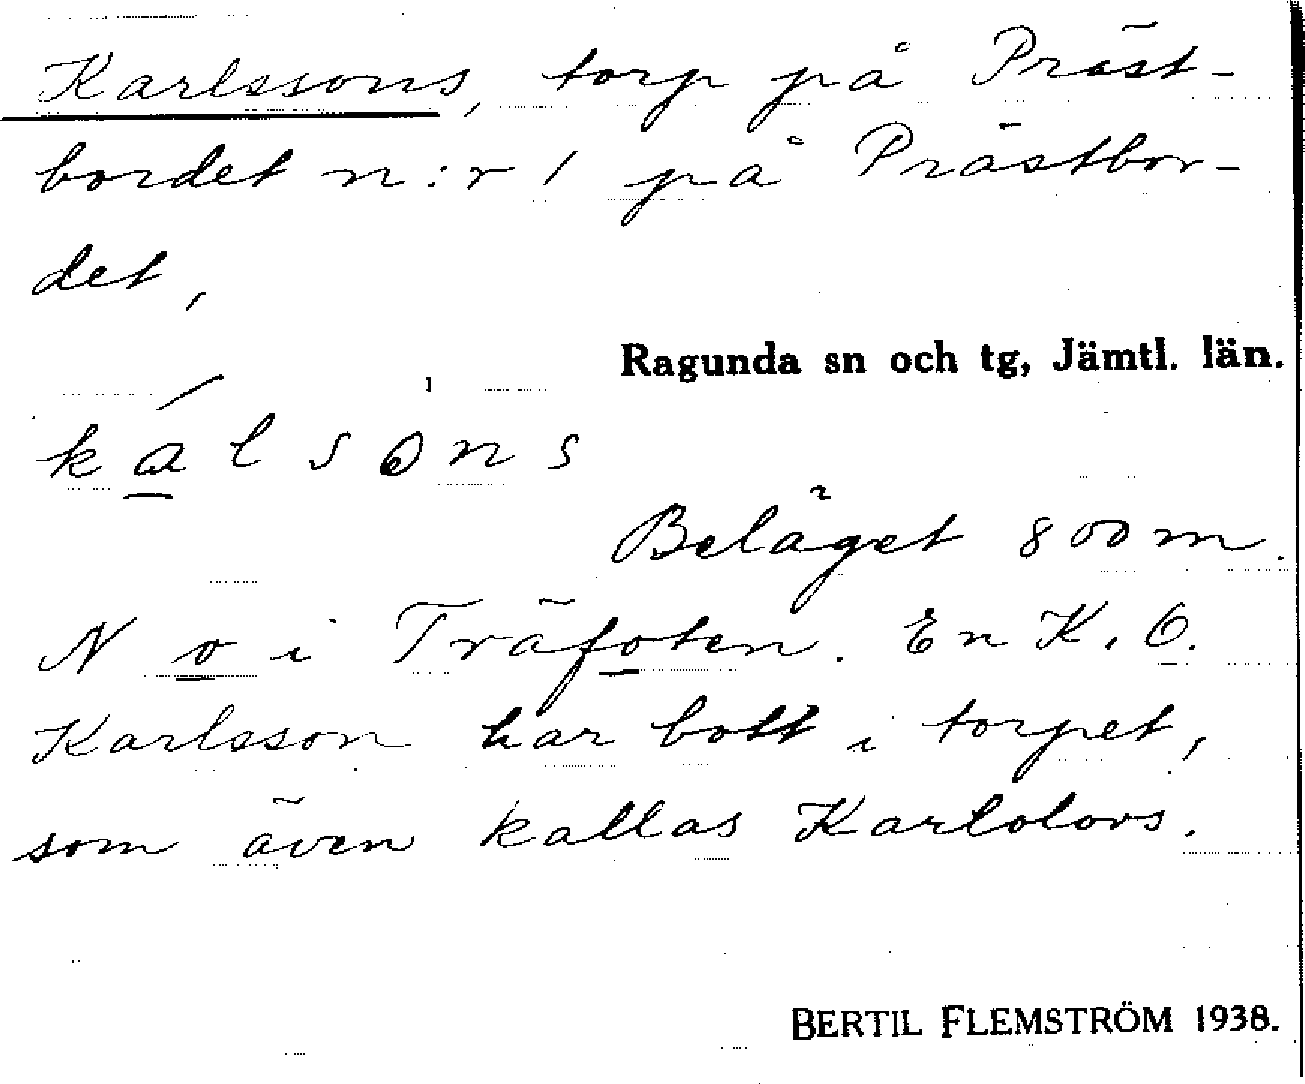 Karlssons, torp på Präst-
bordet n:r 1 på Prästbor-
det,
Ragunda sn och tg, Jämtl. län.
kálsòns
Beläget 800 m.
N o i Träfoten. En K. O.
Karlsson har bott i torpet,
som även kallas Karlolovs.
BERTIL FLEMSTRÖM 1938.